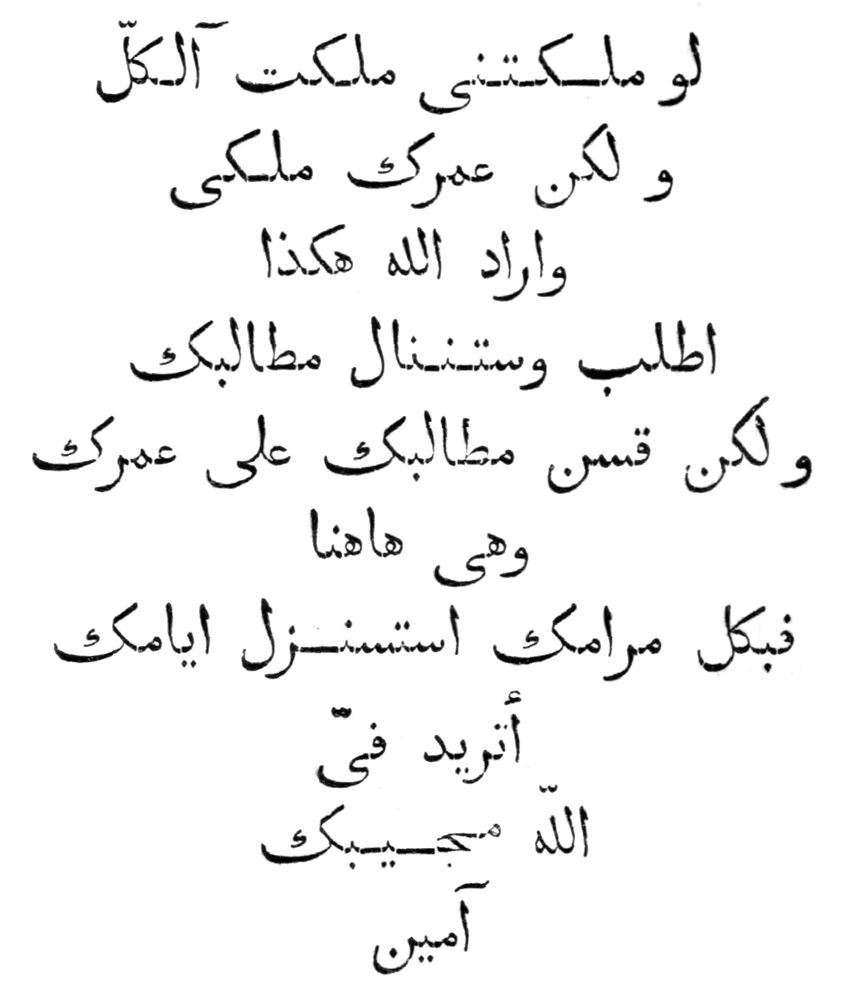 لو ملـــكـتـنى ملكت آلـكلّ
و لكن عمرك ملـكى
واراد الله هكذا
اطلب وستـنـنال مطالبك
و لكن قسن مطالبك على عمرك
وهى هاهنا
فبكل مرامك استسنـــزل ايامك
أتريد فىّ
اللّه مجـــيـبك
آمين